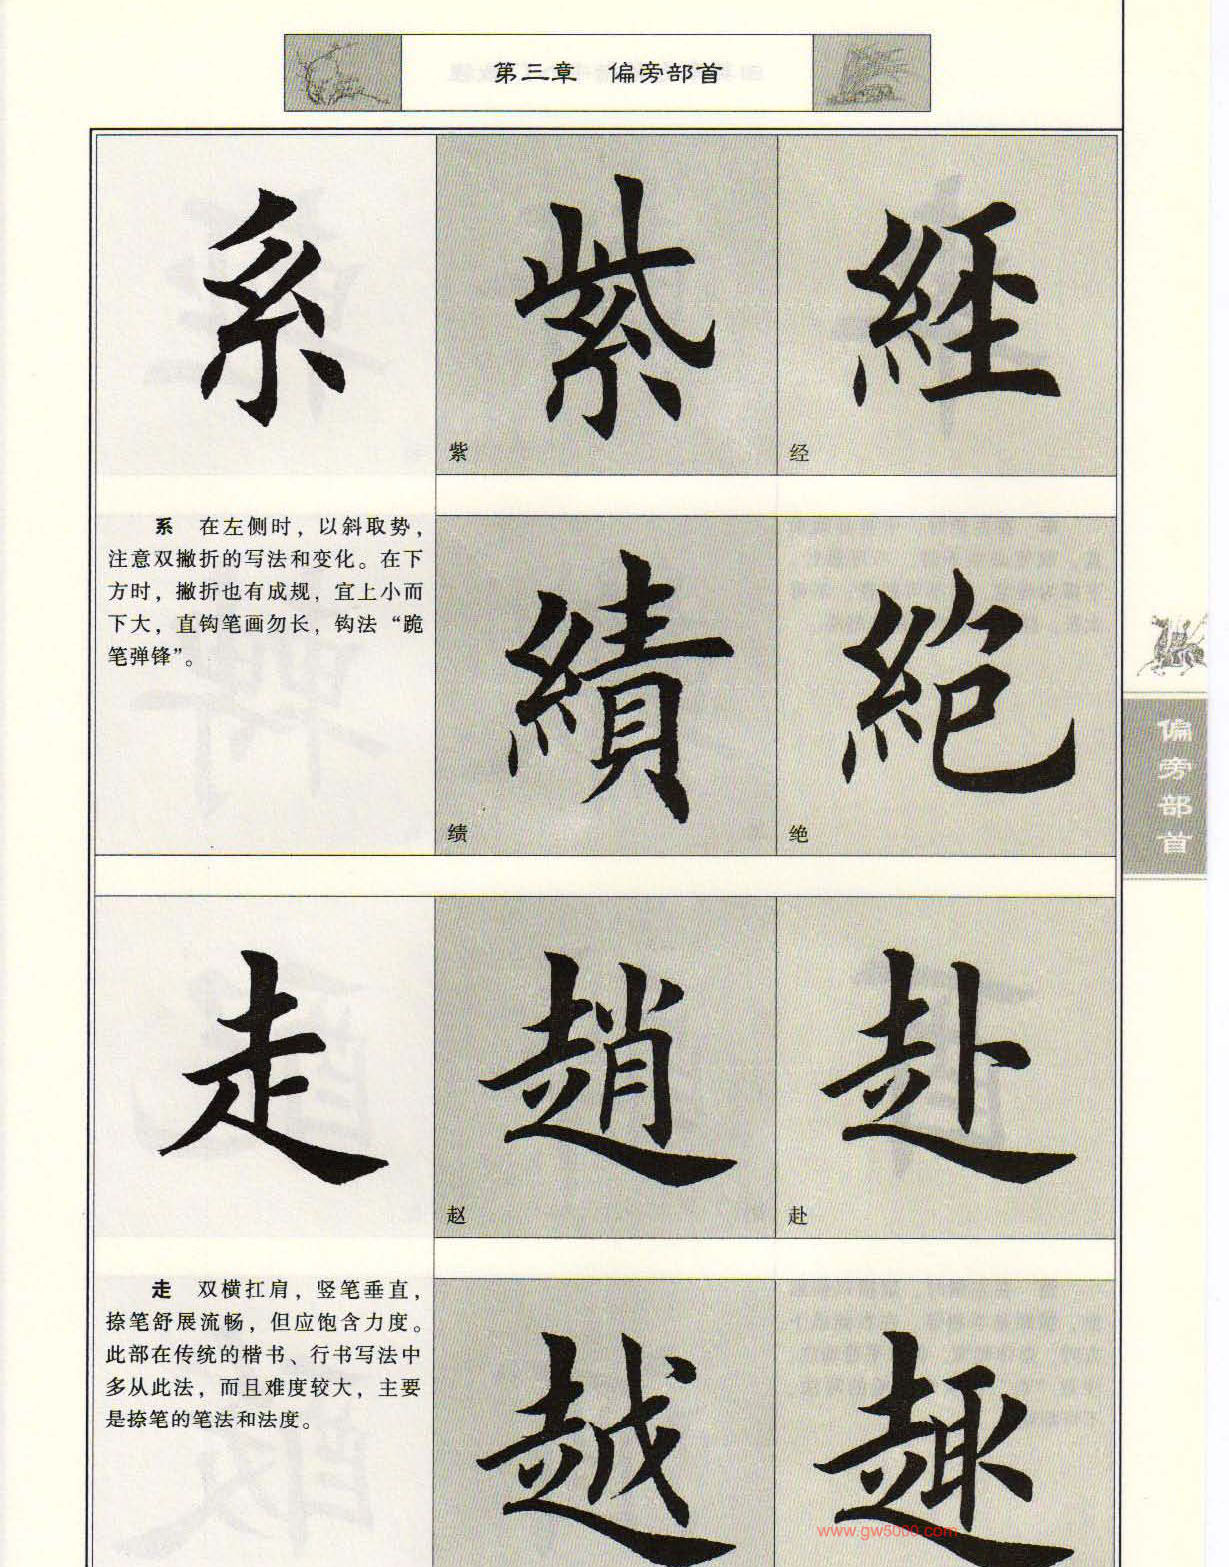 第三章 偏旁部首
系
紫
紫
經
经
系 在左侧时，以斜取势，
注意双撇折的写法和变化。在下
方时，撇折也有成规，宜上小而
下大，直钩笔画勿长，钩法“跪
笔弹锋”。
績
绩
絶
绝
偏旁部首
走
趙
赵
赴
赴
走 双横扛肩，竖笔垂直，
捺笔舒展流畅，但应饱含力度。
此部在传统的楷书、行书写法中
多从此法，而且难度较大，主要
是捺笔的笔法和法度。
越
趣
www.gw5000.com